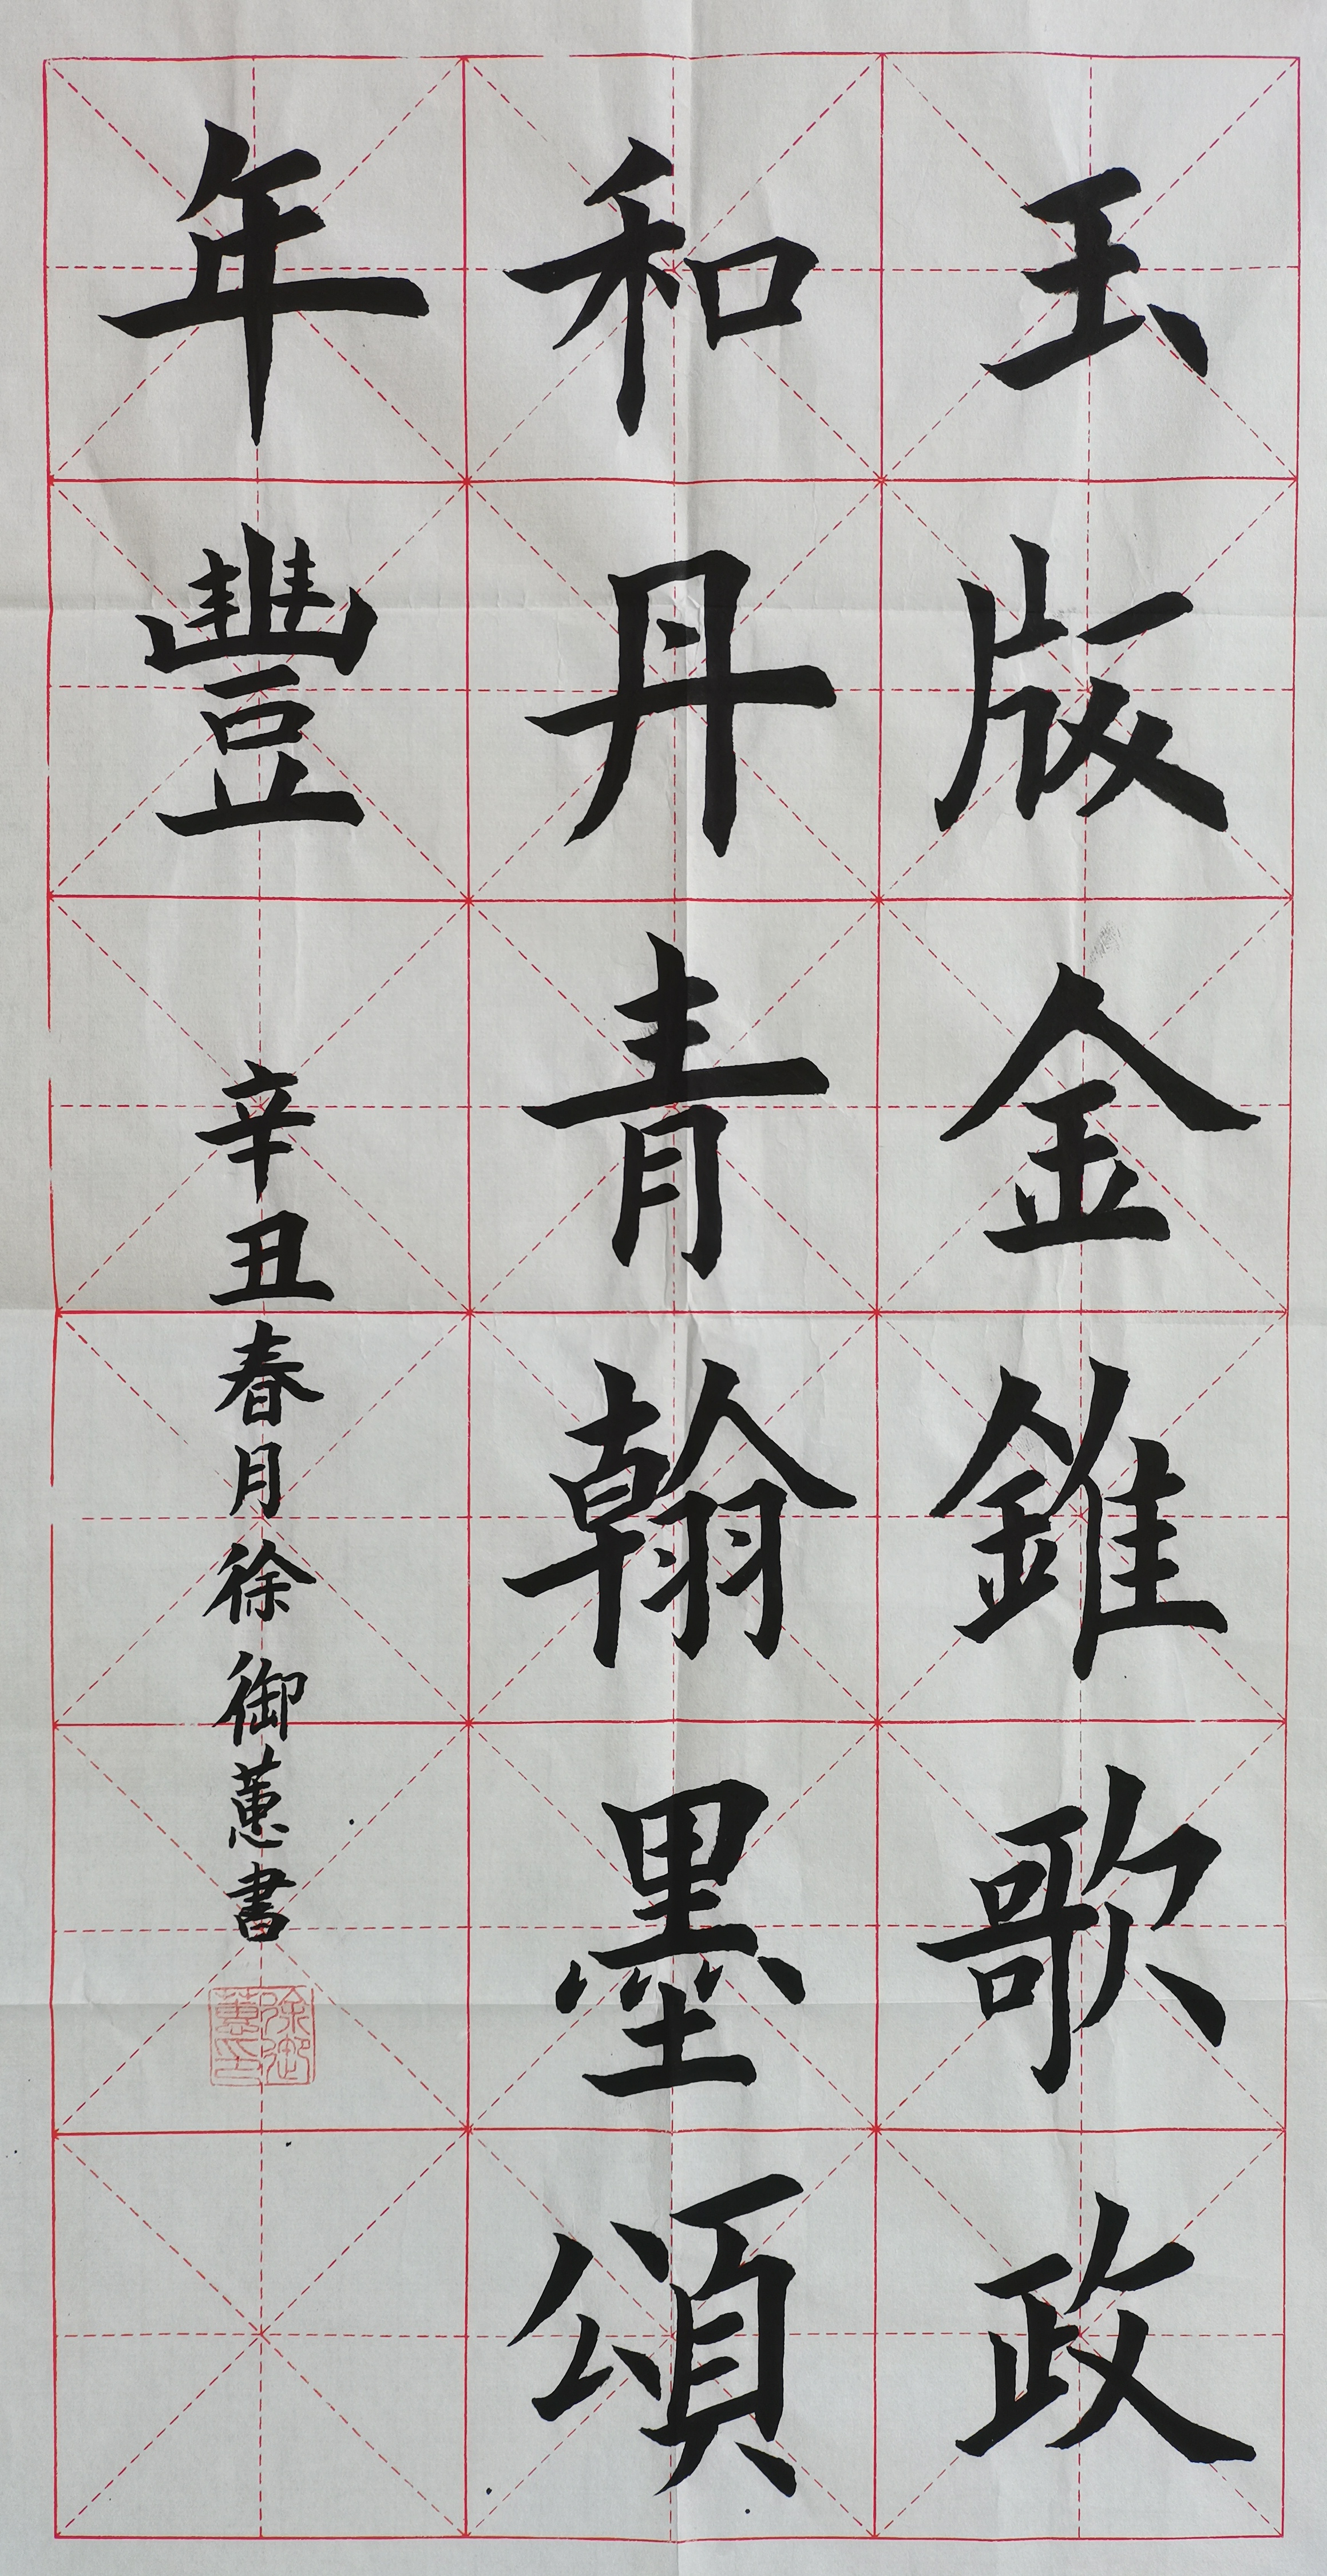 玉版金錐歌政
和丹青翰墨頌
年豐
辛丑春月徐御蕙書
徐御蕙印